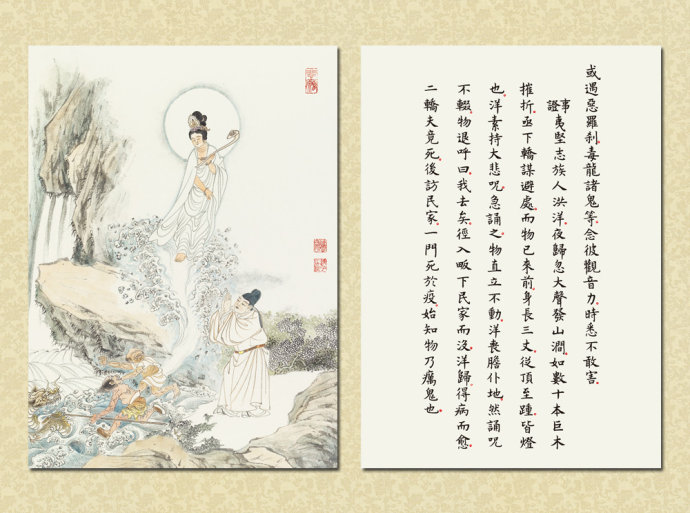 或遇惡羅剎毒龍諸鬼等念彼觀音力時悉不敢害
事證夷堅志族人洪洋夜歸忽大聲發山澗如數十本巨木
摧折亟下轎謀避處而物已來前身長三丈從頂至踵皆燈
也洋素持大悲呪急誦之物直立不動洋喪膽仆地然誦呪
不輟物退呼曰我去矣徑入畈下民家而沒洋歸得病而愈
二轎夫竟死後訪民家一門死於疫始知物乃癘鬼也